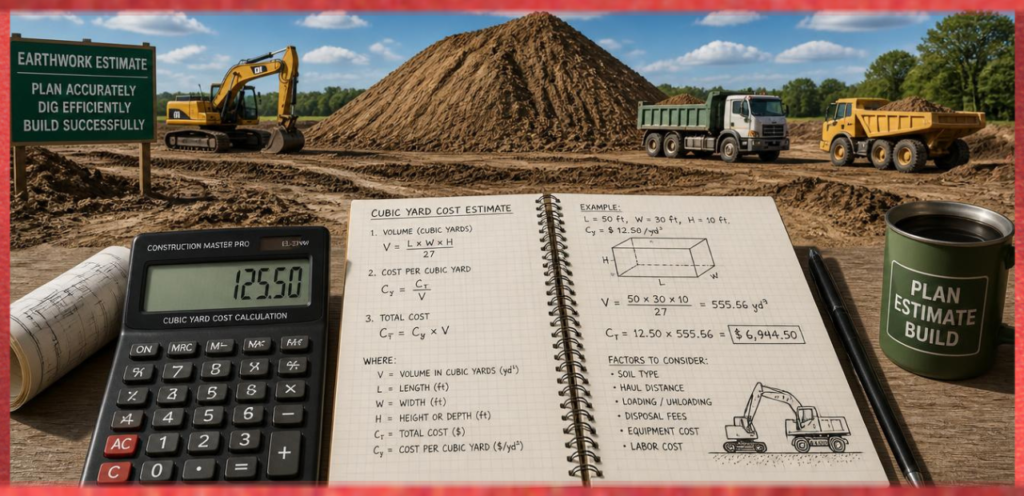 EARTHWORK ESTIMATE
PLAN ACCURATELY
DIG EFFICIENTLY
BUILD SUCCESSFULLY
CAT
CONSTRUCTION MASTER PRO
125.50
CUBIC YARD COST CALCULATION
ON MRC
7 8
4 5 6 −
AC 1 2 3 +
C 0 · =
CUBIC YARD COST ESTIMATE
1. VOLUME (CUBIC YARDS)
V = L × W × H / 27
2. COST PER CUBIC YARD
Cy = CT / V
3. TOTAL COST
CT = Cy × V
WHERE:
V = VOLUME IN CUBIC YARDS (yd³)
L = LENGTH (ft)
W = WIDTH (ft)
H = HEIGHT OR DEPTH (ft)
CT = TOTAL COST ($)
Cy = COST PER CUBIC YARD ($/yd³)
EXAMPLE:
L = 50 ft, W = 30 ft, H = 10 ft.
Cy = $ 12.50/yd³
H
L
W
V = 50 × 30 × 10 / 27 = 555.56 yd³
CT = 12.50 × 555.56 = $ 6,944.50
FACTORS TO CONSIDER:
• SOIL TYPE
• HAUL DISTANCE
• LOADING / UHLOADING
• DISPOSAL FEES
• EQUIPMENT COST
• LABOR COST
PLAN
ESTIMATE
BUILD